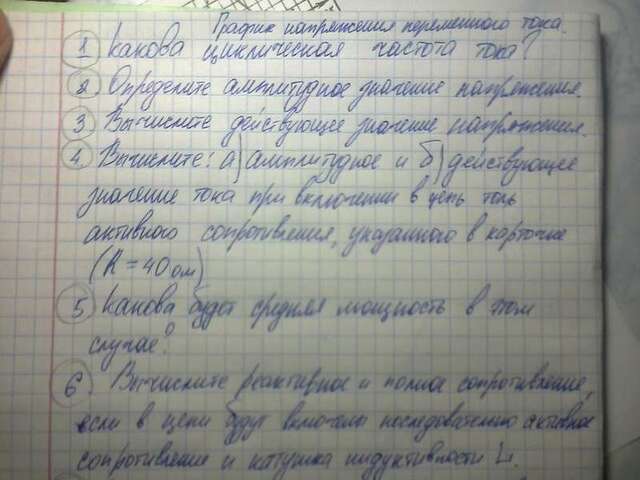 График напряжения переменного тока.
1 Какова циклическая частота тока?
2. Определите амплитудное значение напряжения.
3 Вычислите действующее значение напряжения.
4 Вычислите: а) амплитудное и б) действующее
значение тока при включении в цепь толь
активного сопротивления, указанного в карточке
(R = 40 ом)
5 Какова будет средняя мощность в этом
случае?
6. Вычислите реактивное и полное сопротивление,
если в цепи будут включены последовательно активное
сопротивление и катушка индуктивности L.